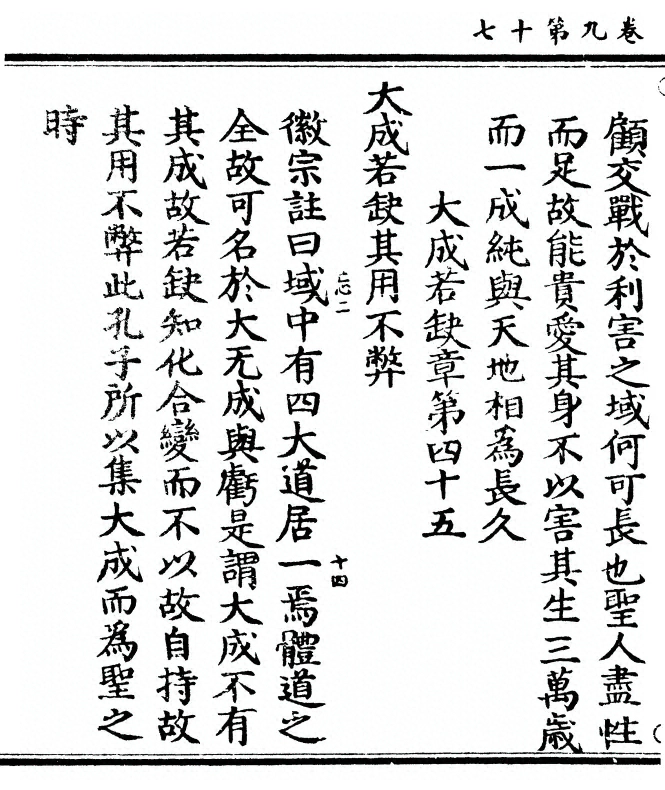 七十第九卷
顧交戰於利害之域何可長也聖人盡性
而足故能貴愛其身不以害其生三萬歲
而一成純與天地相為長久
大成若缺章第四十五
大成若缺其用不弊
徽宗註曰域中有四大道居一焉體道之
忘二
十四
全故可名於大无成與虧是謂大成不有
其成故若缺知化合變而不以故自持故
其用不弊此孔子所以集大成而為聖之
時